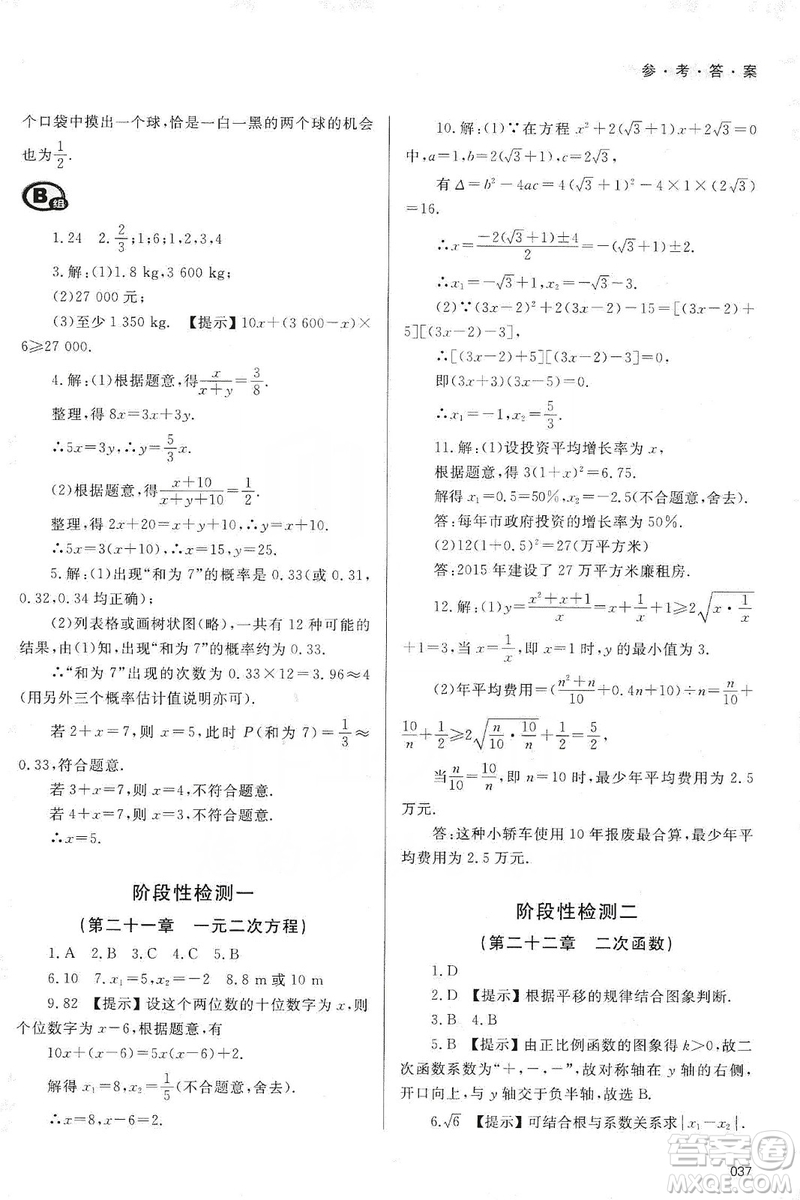 参·考·答·案
个口袋中摸出一个球，恰是一白一黑的两个球的机会
也为1/2.
B组
1.24　2.2/3;1;6;1,2,3,4
3.解:(1)1.8 kg,3 600 kg;
(2)27 000 元;
(3)至少 1 350 kg.　【提示】10x+(3 600-x)×
6≥27 000.
4.解:(1)根据题意,得x/(x+y)=3/8.
整理,得 8x=3x+3y,
∴5x=3y,∴y=5/3x.
(2)根据题意,得(x+10)/(x+y+10)=1/2.
整理,得 2x+20=x+y+10,
∴5x=3x+30,∴x=15,y=25.
5.解:(1)出现“和为 7”的概率是 0.33(或 0.31,
0.32,0.34 均正确);
(2)列表格或画树状图(略),一共有 12 种可能的
结果,由(1)知,出现“和为 7”的概率约为 0.33.
∴“和为 7”出现的次数为 0.33×12=3.96≈4
(用另外三个概率估计值说明亦可).
若 2+x=7,则 x=5,此时 P(和为 7)=1/3≈
0.33,符合题意.
若 3+x=7,则 x=4,不符合题意.
若 4+x=7,则 x=3,不符合题意.
∴x=5.
阶段性检测一
(第二十一章　一元二次方程)
1.A　2.B　3.C　4.C　5.B
6.10　7.x₁=1,x₂=-2　8.8 m 或 10 m
9.82　【提示】设这个两位数的十位数字为 x,则
个位数字为 x-6,根据题意,有
10x+(x-6)=3x(x-6)+2.
解得 x₁=8,x₂=1/3(不合题意,舍去).
∴x=8,x-6=2.
10.解:(1)∵在方程 x²+2(√3+1)x+2√3=0
中,a=1,b=2(√3+1),c=2√3,
有 Δ=b²-4ac=4(√3+1)²-4×1×(2√3)
=16.
∴x=(-2(√3+1)±4)/2=-(√3+1)±2.
∴x₁=-√3-3,x₂=1-√3.
(2)∵(3x-2)²+2(3x-2)-15=[(3x-2)+
5][(3x-2)-3],
∴[(3x-2)+5][(3x-2)-3]=0,
即(3x+3)(3x-5)=0.
∴x₁=-1,x₂=5/3.
11.解:(1)设投资平均增长率为 x,
根据题意,得 3(1+x)²=6.75.
解得 x₁=0.5=50%,x₂=-2.5(不合题意,舍去).
答:每年市政府投资的增长率为 50%.
(2)12(1+0.5)²=27(万平方米)
答:2015 年建设了 27 万平方米廉租房.
12.解:(1)y=(x²+x+1)/x=x+1/x+1≥2√(x·1/x)
+1=3,当 x=1/x,即 x=1 时,y 的最小值为 3.
(2)年平均费用=((n²+n)/10+0.4n+10)÷n=n/10+
10/n+1/2≥2√(n/10·10/n)+1/2=2+1/2=2.5,
当n/10=10/n,即 n=10 时,最少年平均费用为 2.5
万元.
答:这种小轿车使用 10 年报废最合算,最少年平
均费用为 2.5 万元.
阶段性检测二
(第二十二章　二次函数)
1.D
2.D　【提示】根据平移的规律结合图象判断.
3.B　4.B
5.B　【提示】由正比例函数的图象得 k>0,故二
次函数系数为“+,-,-”,故对称轴在 y 轴的右侧,
开口向上,与 y 轴交于负半轴,故选 B.
6.√6　【提示】可结合根与系数关系求|x₁-x₂|.
037
作业精灵
MXQE.COM